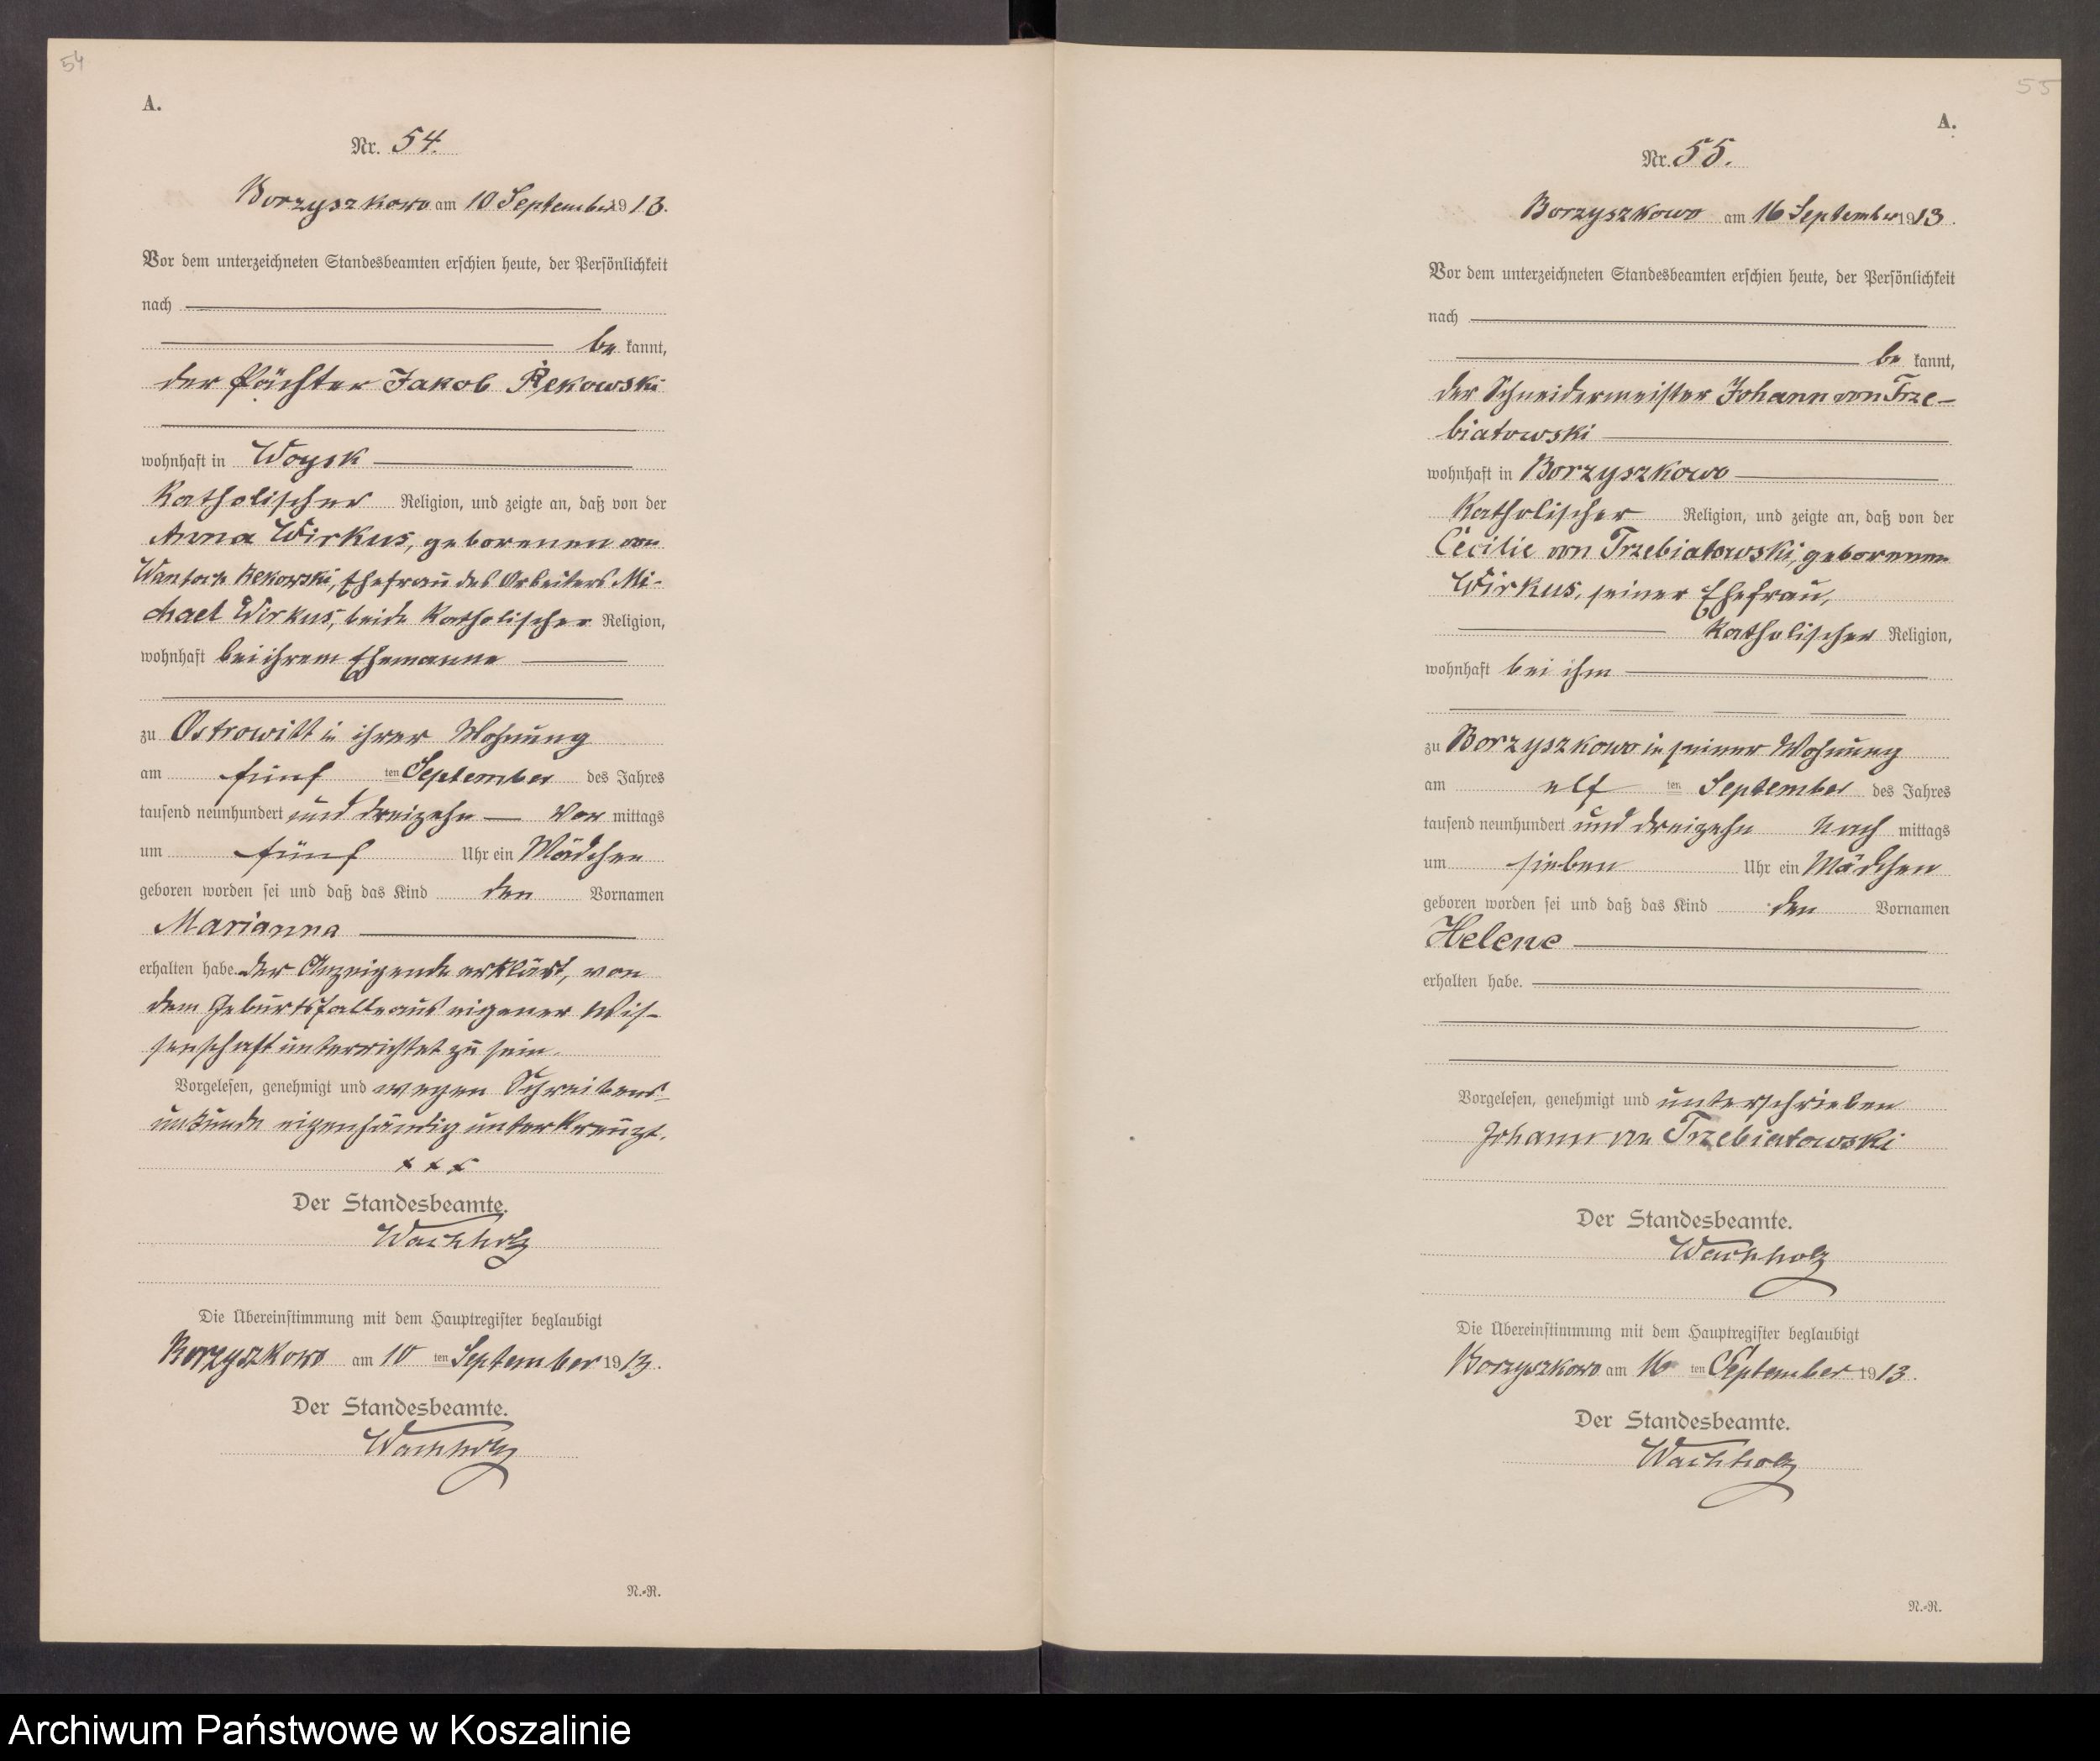 54
A.
Nr. 54.
Borzyszkowo am 10 September 1913.
Vor dem unterzeichneten Standesbeamten erschien heute, der Persönlichkeit
nach
be kannt,
der Pächter Jakob Rekowski
wohnhaft in Woysk
katholischer Religion, und zeigte an, daß von der
Anna Wirkus, geborenen von
Wantoch Rekowski, Ehefrau des Arbeiters Mi-
chael Wirkus, beide katholischer Religion,
wohnhaft bei ihrem Ehemanne
zu Ostrowitt in ihrer Wohnung
am fünf ten September des Jahres
tausend neunhundert und dreizehn Vor mittags
um fünf Uhr ein Mädchen
geboren worden sei und daß das Kind den Vornamen
Marianna
erhalten habe. Der Anzeigende erklärt, von
dem Geburtsfalle aus eigener Wis-
senschaft unterrichtet zu sein.
Vorgelesen, genehmigt und wegen Schreibens-
unkunde eigenhändig unterkreuzt.
+ + +
Der Standesbeamte.
Wachholz
Die Übereinstimmung mit dem Hauptregister beglaubigt
Borzyszkowo am 10 ten September 1913.
Der Standesbeamte.
Wachholz
N.-R.
55
A.
Nr. 55.
Borzyszkowo am 16 September 1913.
Vor dem unterzeichneten Standesbeamten erschien heute, der Persönlichkeit
nach
be kannt,
der Schneidermeister Johann von Trze-
biatowski
wohnhaft in Borzyszkowo
katholischer Religion, und zeigte an, daß von der
Cecilie von Trzebiatowski, geborenen
Wirkus, seiner Ehefrau,
katholischer Religion,
wohnhaft bei ihm
zu Borzyszkowo in seiner Wohnung
am elf ten September des Jahres
tausend neunhundert und dreizehn Nach mittags
um sieben Uhr ein Mädchen
geboren worden sei und daß das Kind den Vornamen
Helene
erhalten habe.
Vorgelesen, genehmigt und unterschrieben
Johann von Trzebiatowski
Der Standesbeamte.
Wachholz
Die Übereinstimmung mit dem Hauptregister beglaubigt
Borzyszkowo am 16 ten September 1913.
Der Standesbeamte.
Wachholz
N.-R.
Archiwum Państwowe w Koszalinie